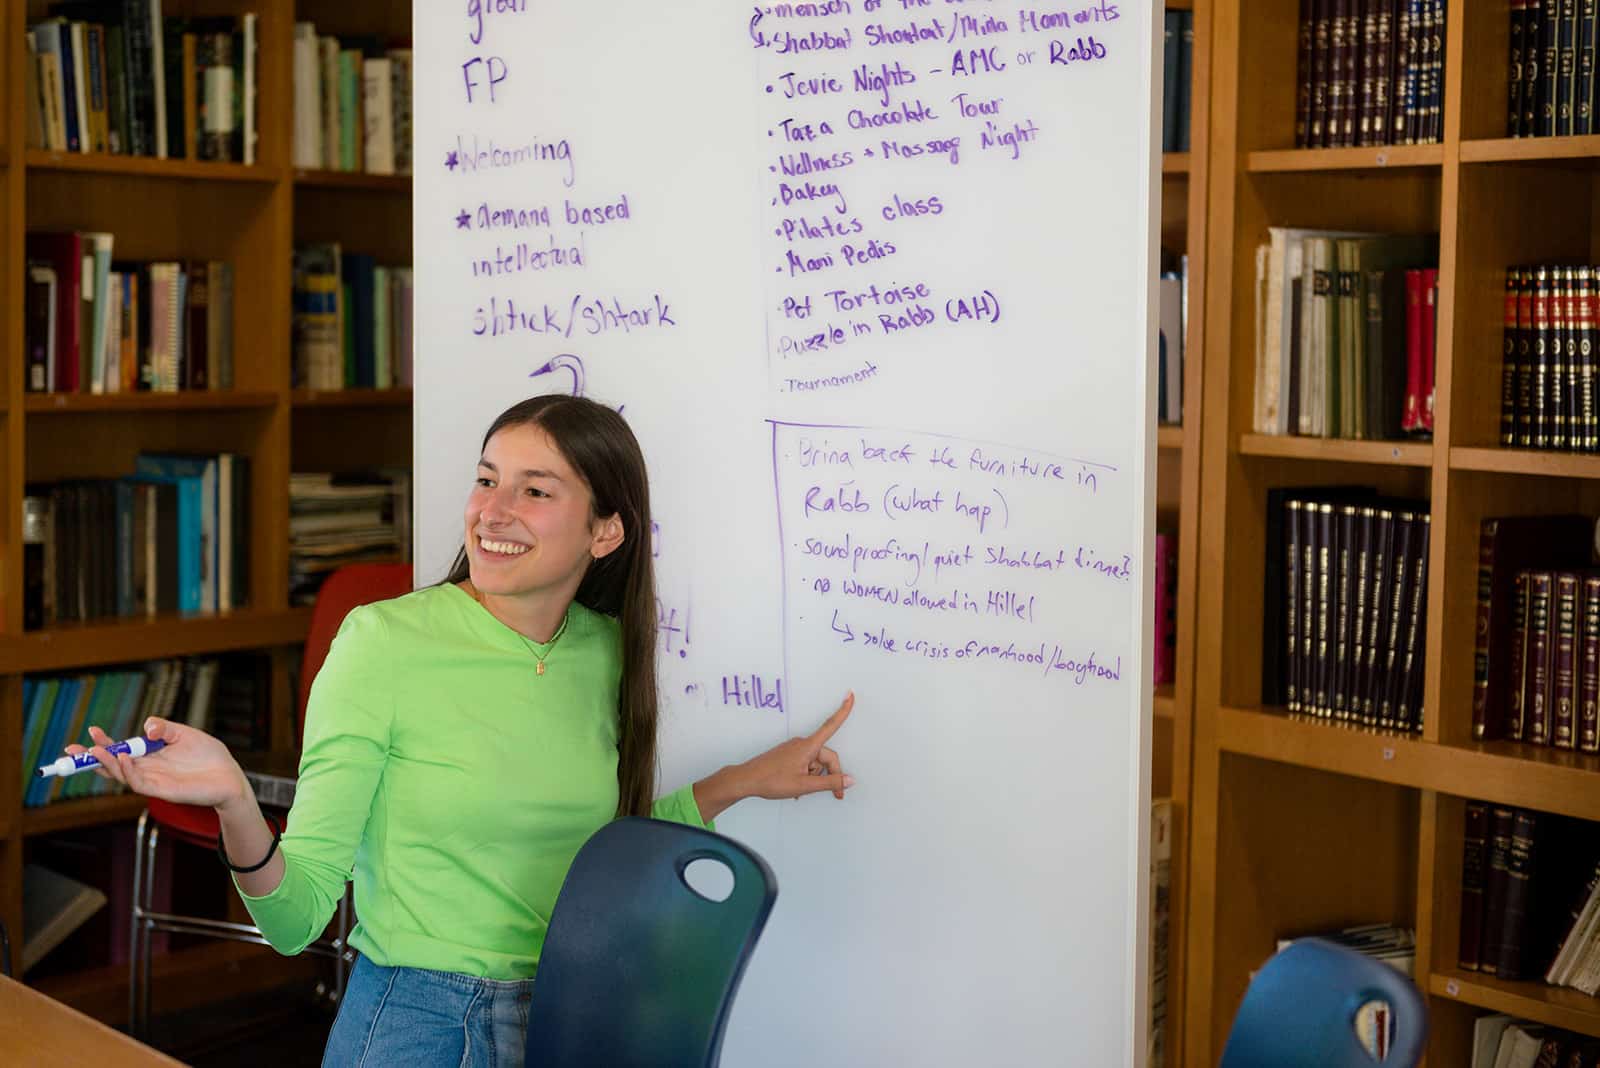 FP
★Welcoming
★demand based
intellectual
shtick/shtark
Hillel
mensch of the
Shabbat Shoutout/Mida Moments
• Jovie Nights - AMC or Rabb
• Taza Chocolate Tour
• Wellness + Massage Night
Bakey
• Pilates class
• Mani Pedis
Pet Tortoise
Puzzle in Rabb (AH)
Tournament
Bring back the furniture in
Rabb (what hap)
• soundproofing/quiet Shabbat dinner?
• no WOMEN allowed in Hillel
↳ solve crisis of manhood/boyhood